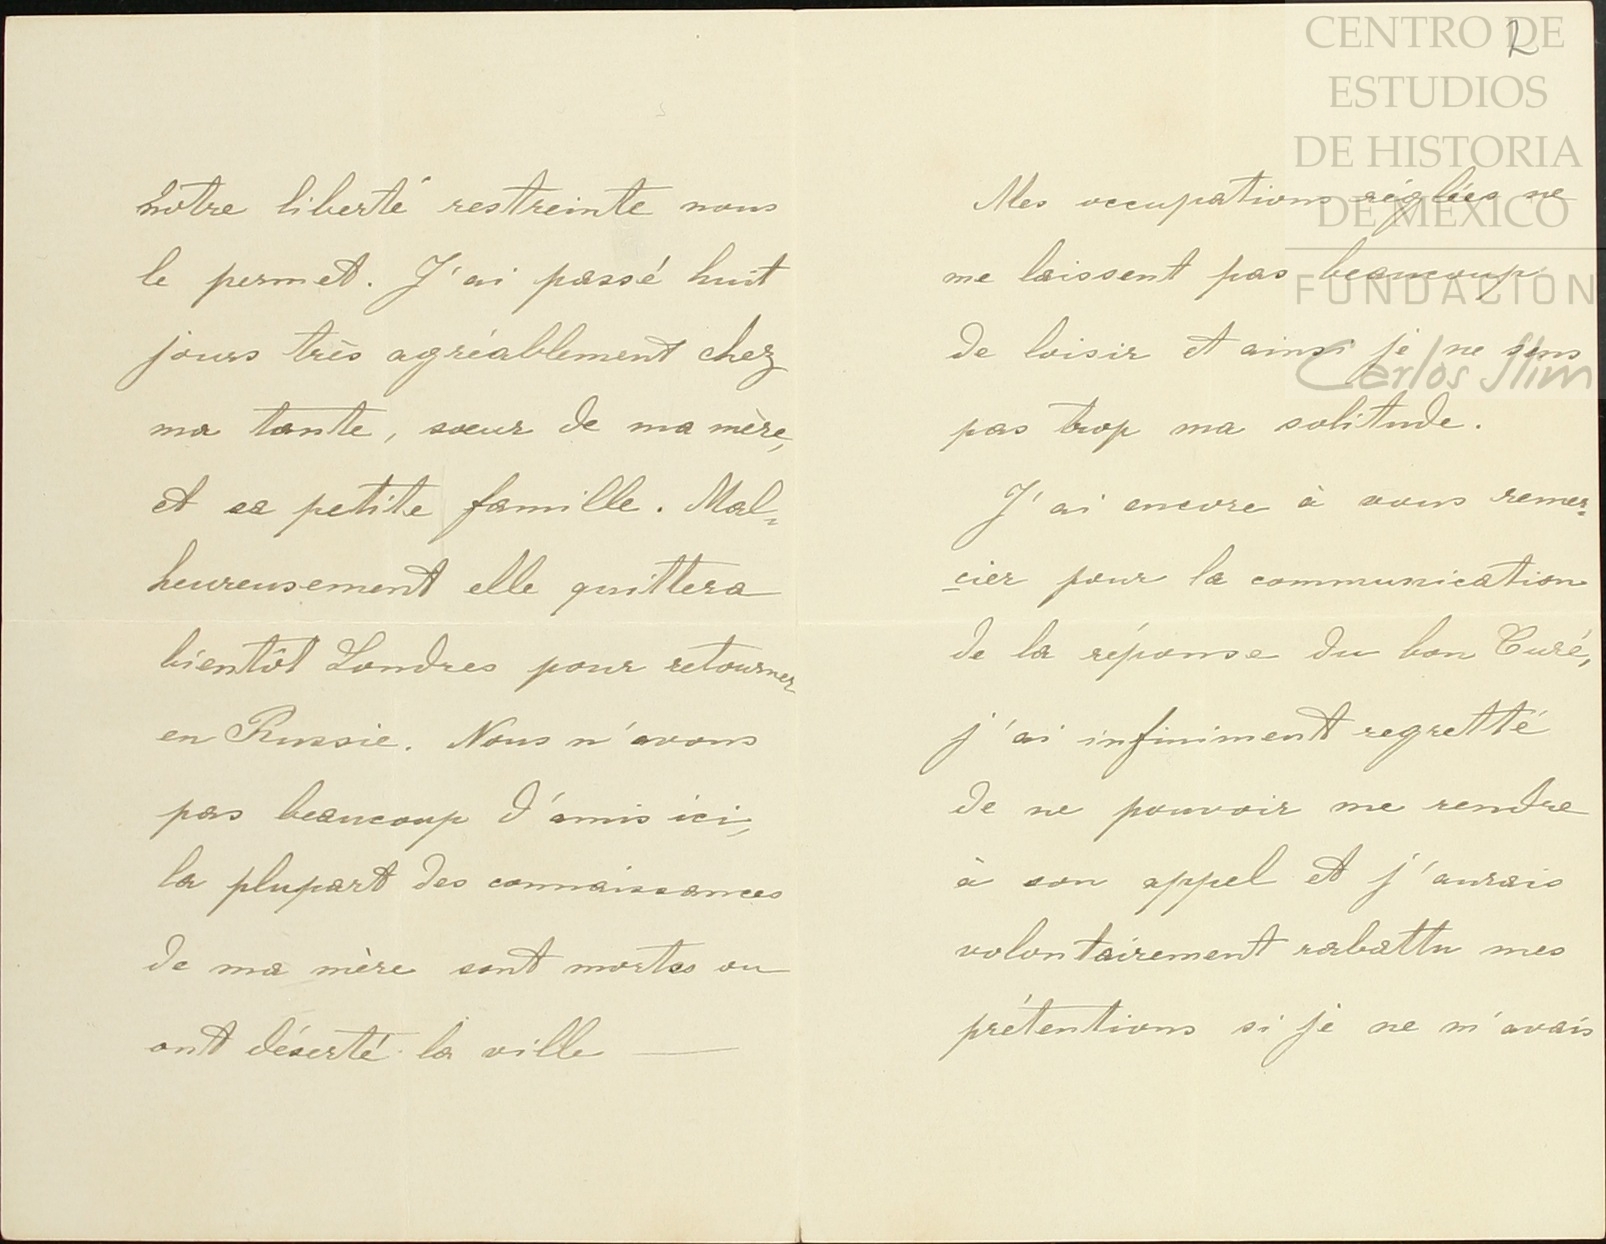 notre liberté restreinte nous
le permet. J'ai passé huit
jours très agréablement chez
ma tante, sœur de ma mère,
et sa petite famille. Mal=
heureusement elle quittera
bientôt Londres pour retourner
en Russie. Nous n'avons
pas beaucoup d'amis ici,
la plupart des connaissances
de ma mère sont mortes ou
ont déserté la ville —
2
Mes occupations réglées ne
me laissent pas beaucoup
de loisir et ainsi je ne sens
pas trop ma solitude.
J'ai encore à vous remer=
cier pour la communication
de la réponse du bon Curé,
j'ai infiniment regretté
de ne pouvoir me rendre
à son appel et j'aurais
volontairement rabattu mes
prétentions si je ne m'avais
CENTRO DE
ESTUDIOS
DE HISTORIA
DE MÉXICO
FUNDACIÓN
Carlos Slim